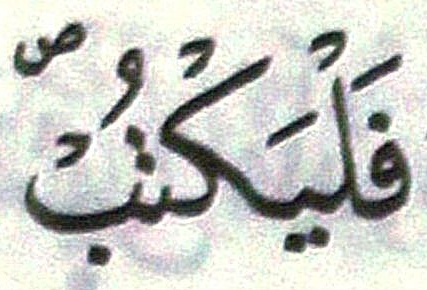 فَلْيَكْتُبْ ۖ ص